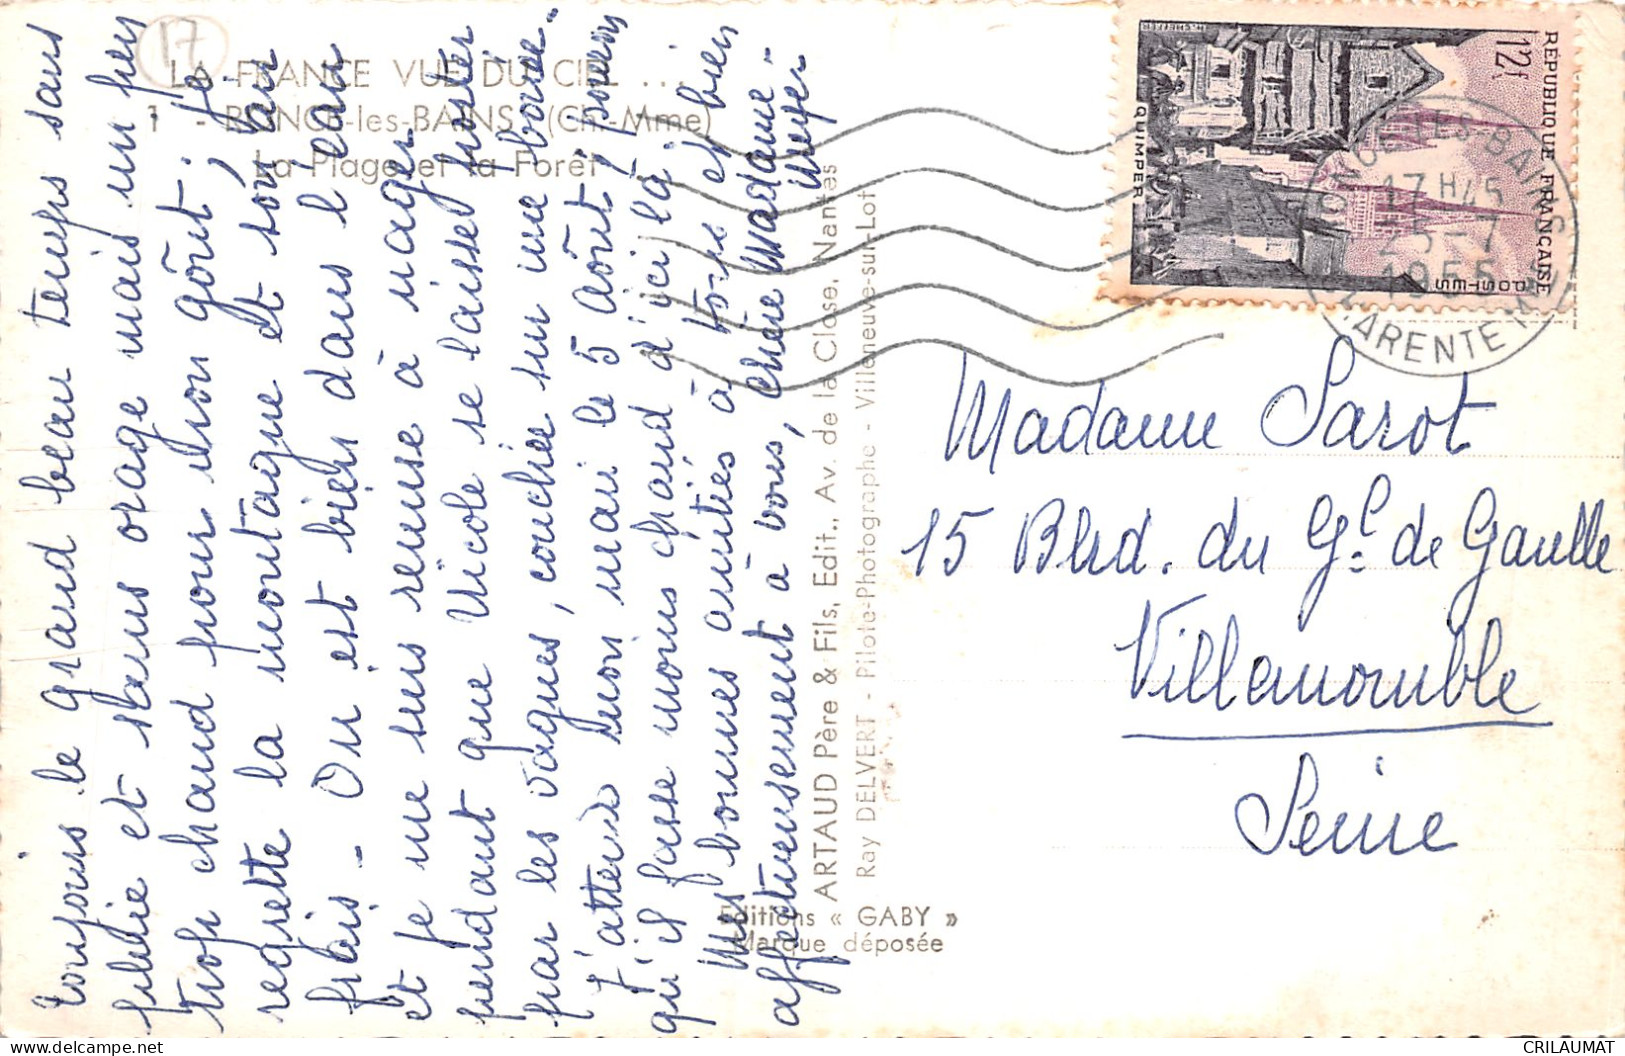 17
LA FRANCE VUE DU CIEL ...
1 - RONCE-les-BAINS (Ch.-Mme)
La Plage et la Forêt
Toujours le grand beau temps sans
pluie et sans orage mais un peu
trop chaud pour mon goût ; je
regrette la montagne et son air
frais - On est bien dans l'eau
et je me suis remise à nager
pendant que Nicole se laisse porter
par les vagues, couchée sur une bouée -
J'attends mon mari le 5 août ; pourvu
qu'il fasse moins chaud d'ici là.
Mes bonnes amitiés à tous et bien
affectueusement à vous, chère Madame -
ARTAUD Père & Fils, Edit., Av. de la Close, Nantes
Ray DELVERT - Pilote-Photographe - Villeneuve-sur-Lot
Editions « GABY »
Marque déposée
RÉPUBLIQUE FRANÇAISE
12f
POSTES
QUIMPER
RONCE-LES-BAINS
17H45
25-7
1955
CHARENTE Mme
Madame Sarot
15 Blvd. du Gl de Gaulle
Villemomble
Seine
CRILAUMAT